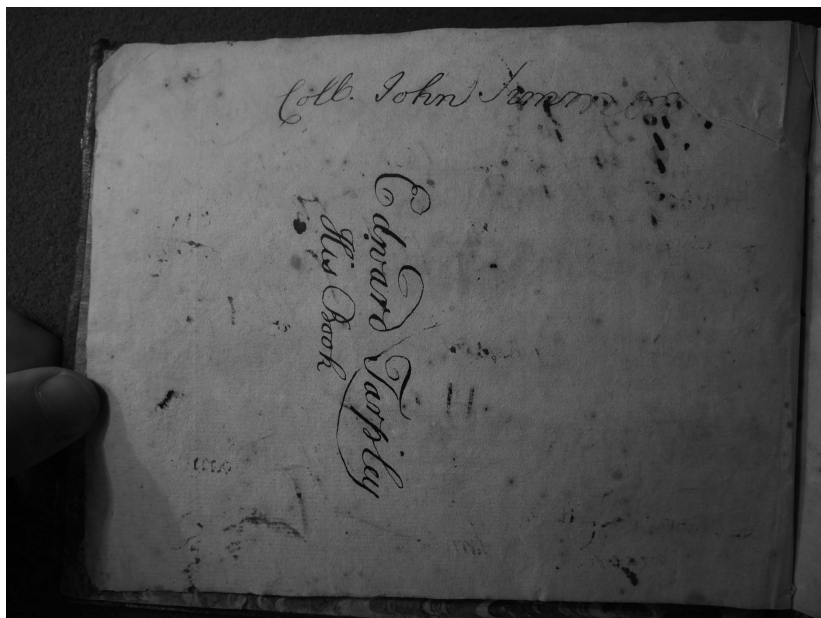 Coll. John
Edward Tarpley
His Book